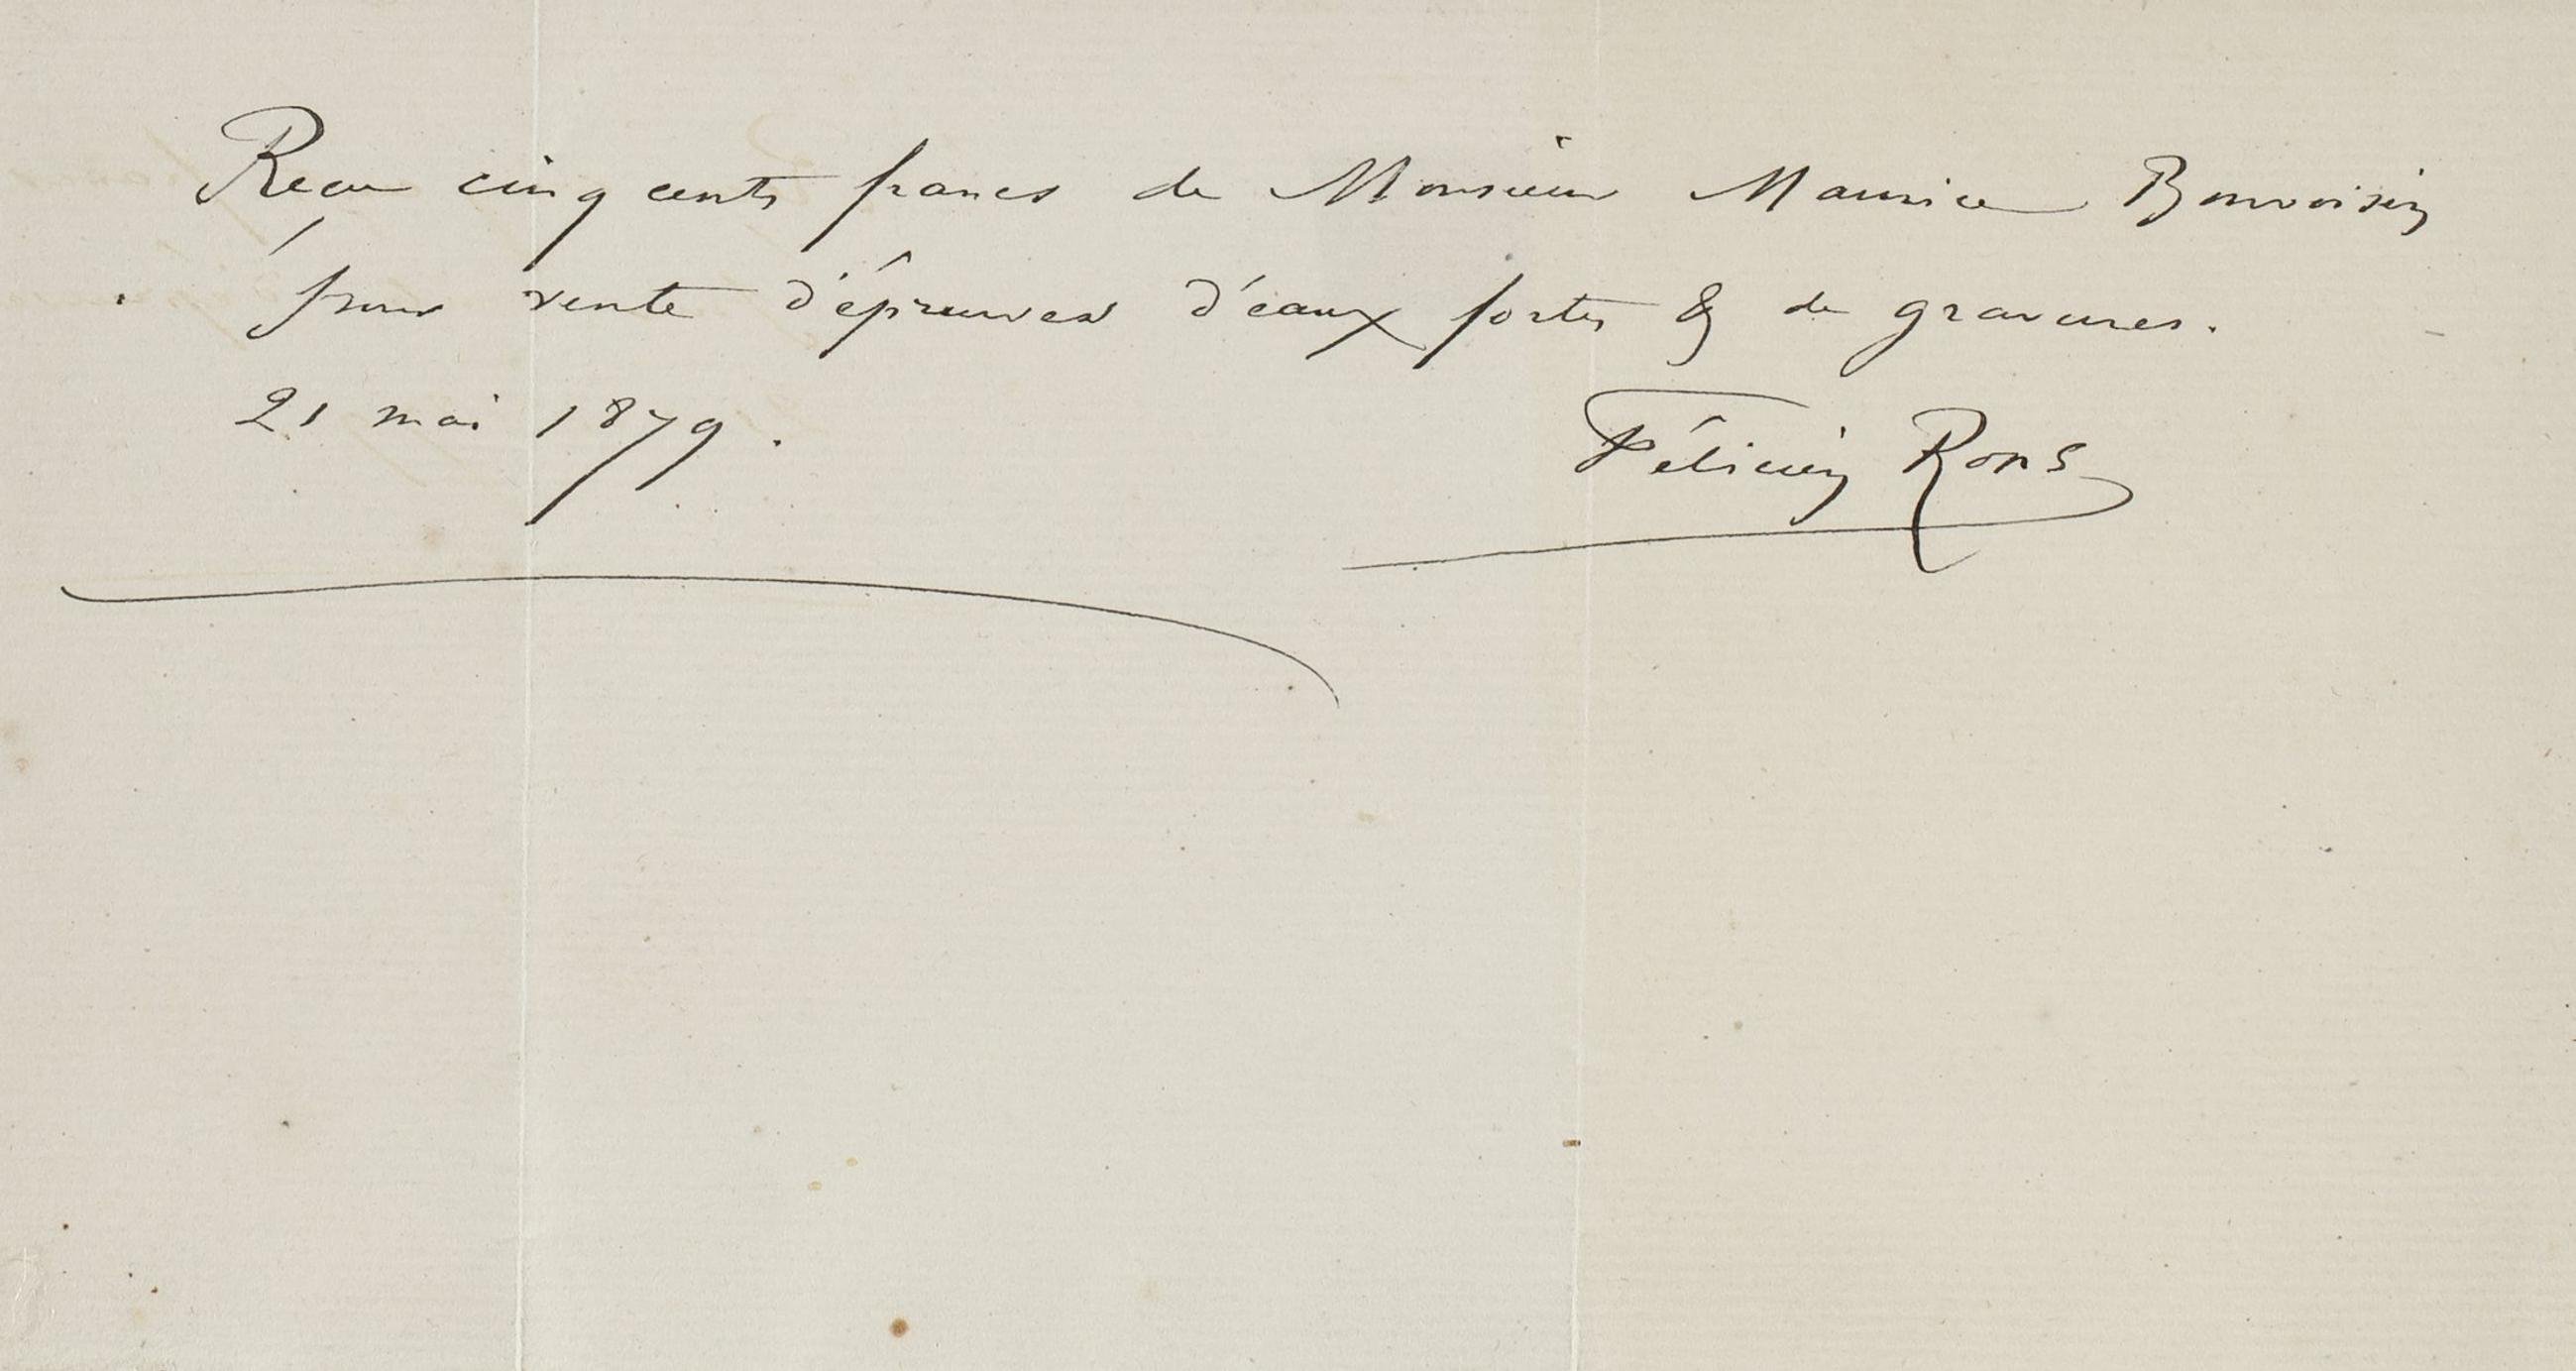 Reçu cinq cents francs de Monsieur Maurice Bonvoisin
pour vente d'épreuves d'eaux fortes & de gravures.
21 mai 1879.
Félicien Rops